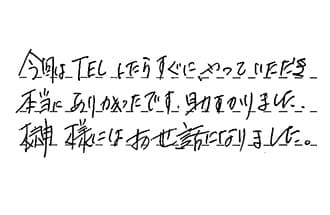 今回はTELしたらすぐに、やっていただき
本当にありがたかったです。助かりました。
榊様にはお世話になりました。